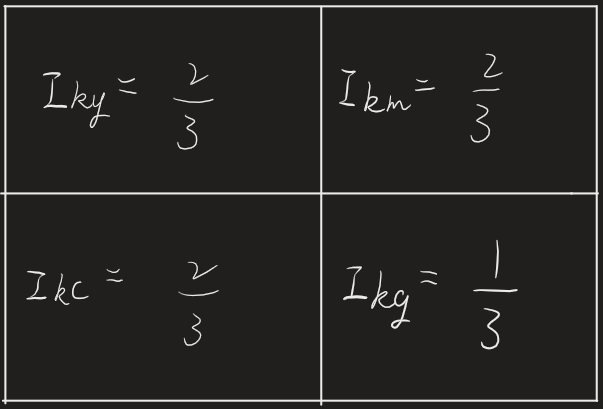 I_ky = 2/3
I_km = 2/3
I_kc = 2/3
I_kg = 1/3